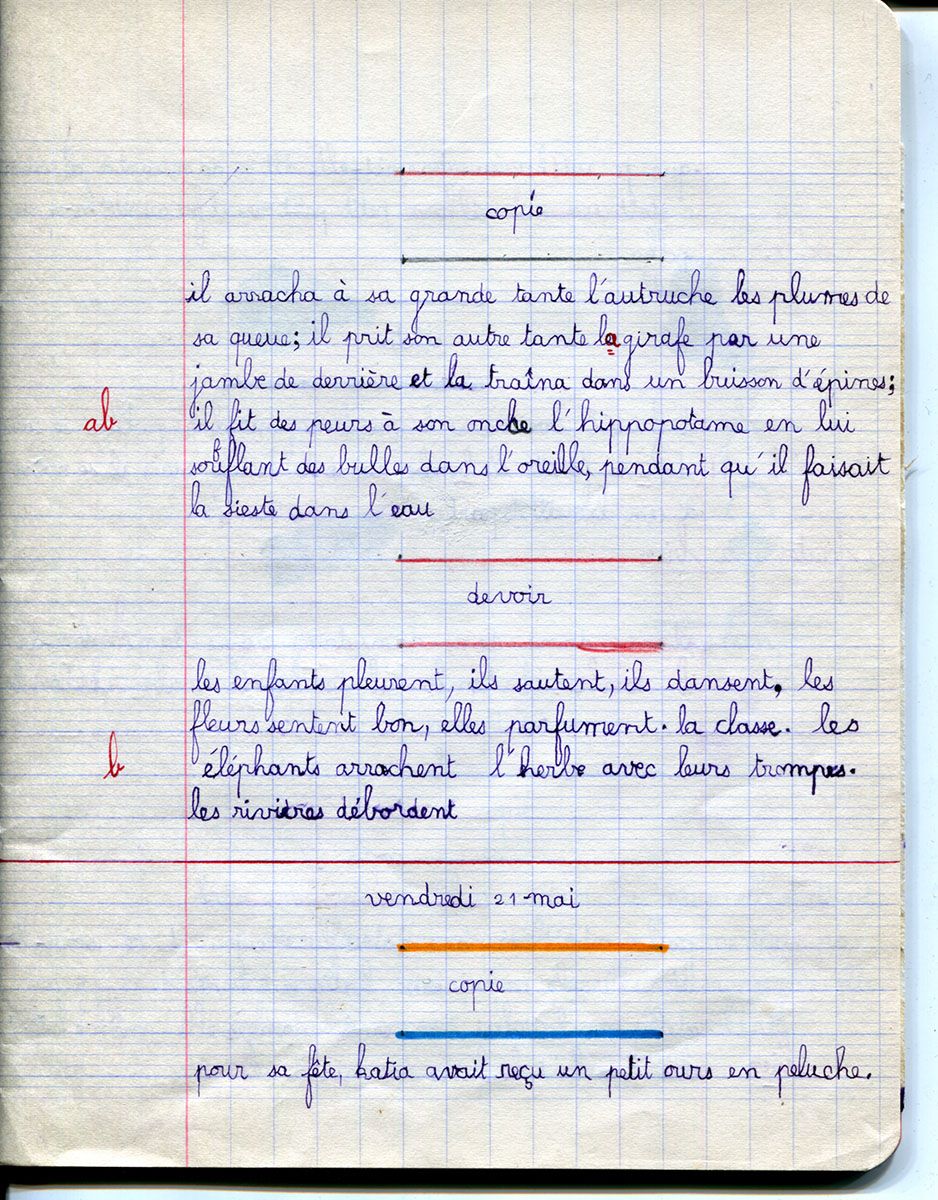 copie
il arracha à sa grande tante l'autruche les plumes de
sa queue; il prit son autre tante la girafe par une
jambe de derrière et la traîna dans un buisson d'épines;
ab
il fit des peurs à son oncle l'hippopotame en lui
soufflant des bulles dans l'oreille, pendant qu'il faisait
la sieste dans l'eau
devoir
les enfants pleurent, ils sautent, ils dansent, les
fleurs sentent bon, elles parfument. la classe. les
b
éléphants arrachent l'herbe avec leurs trompes.
les rivières débordent
vendredi 21 mai
copie
pour sa fête, katia avait reçu un petit ours en peluche.